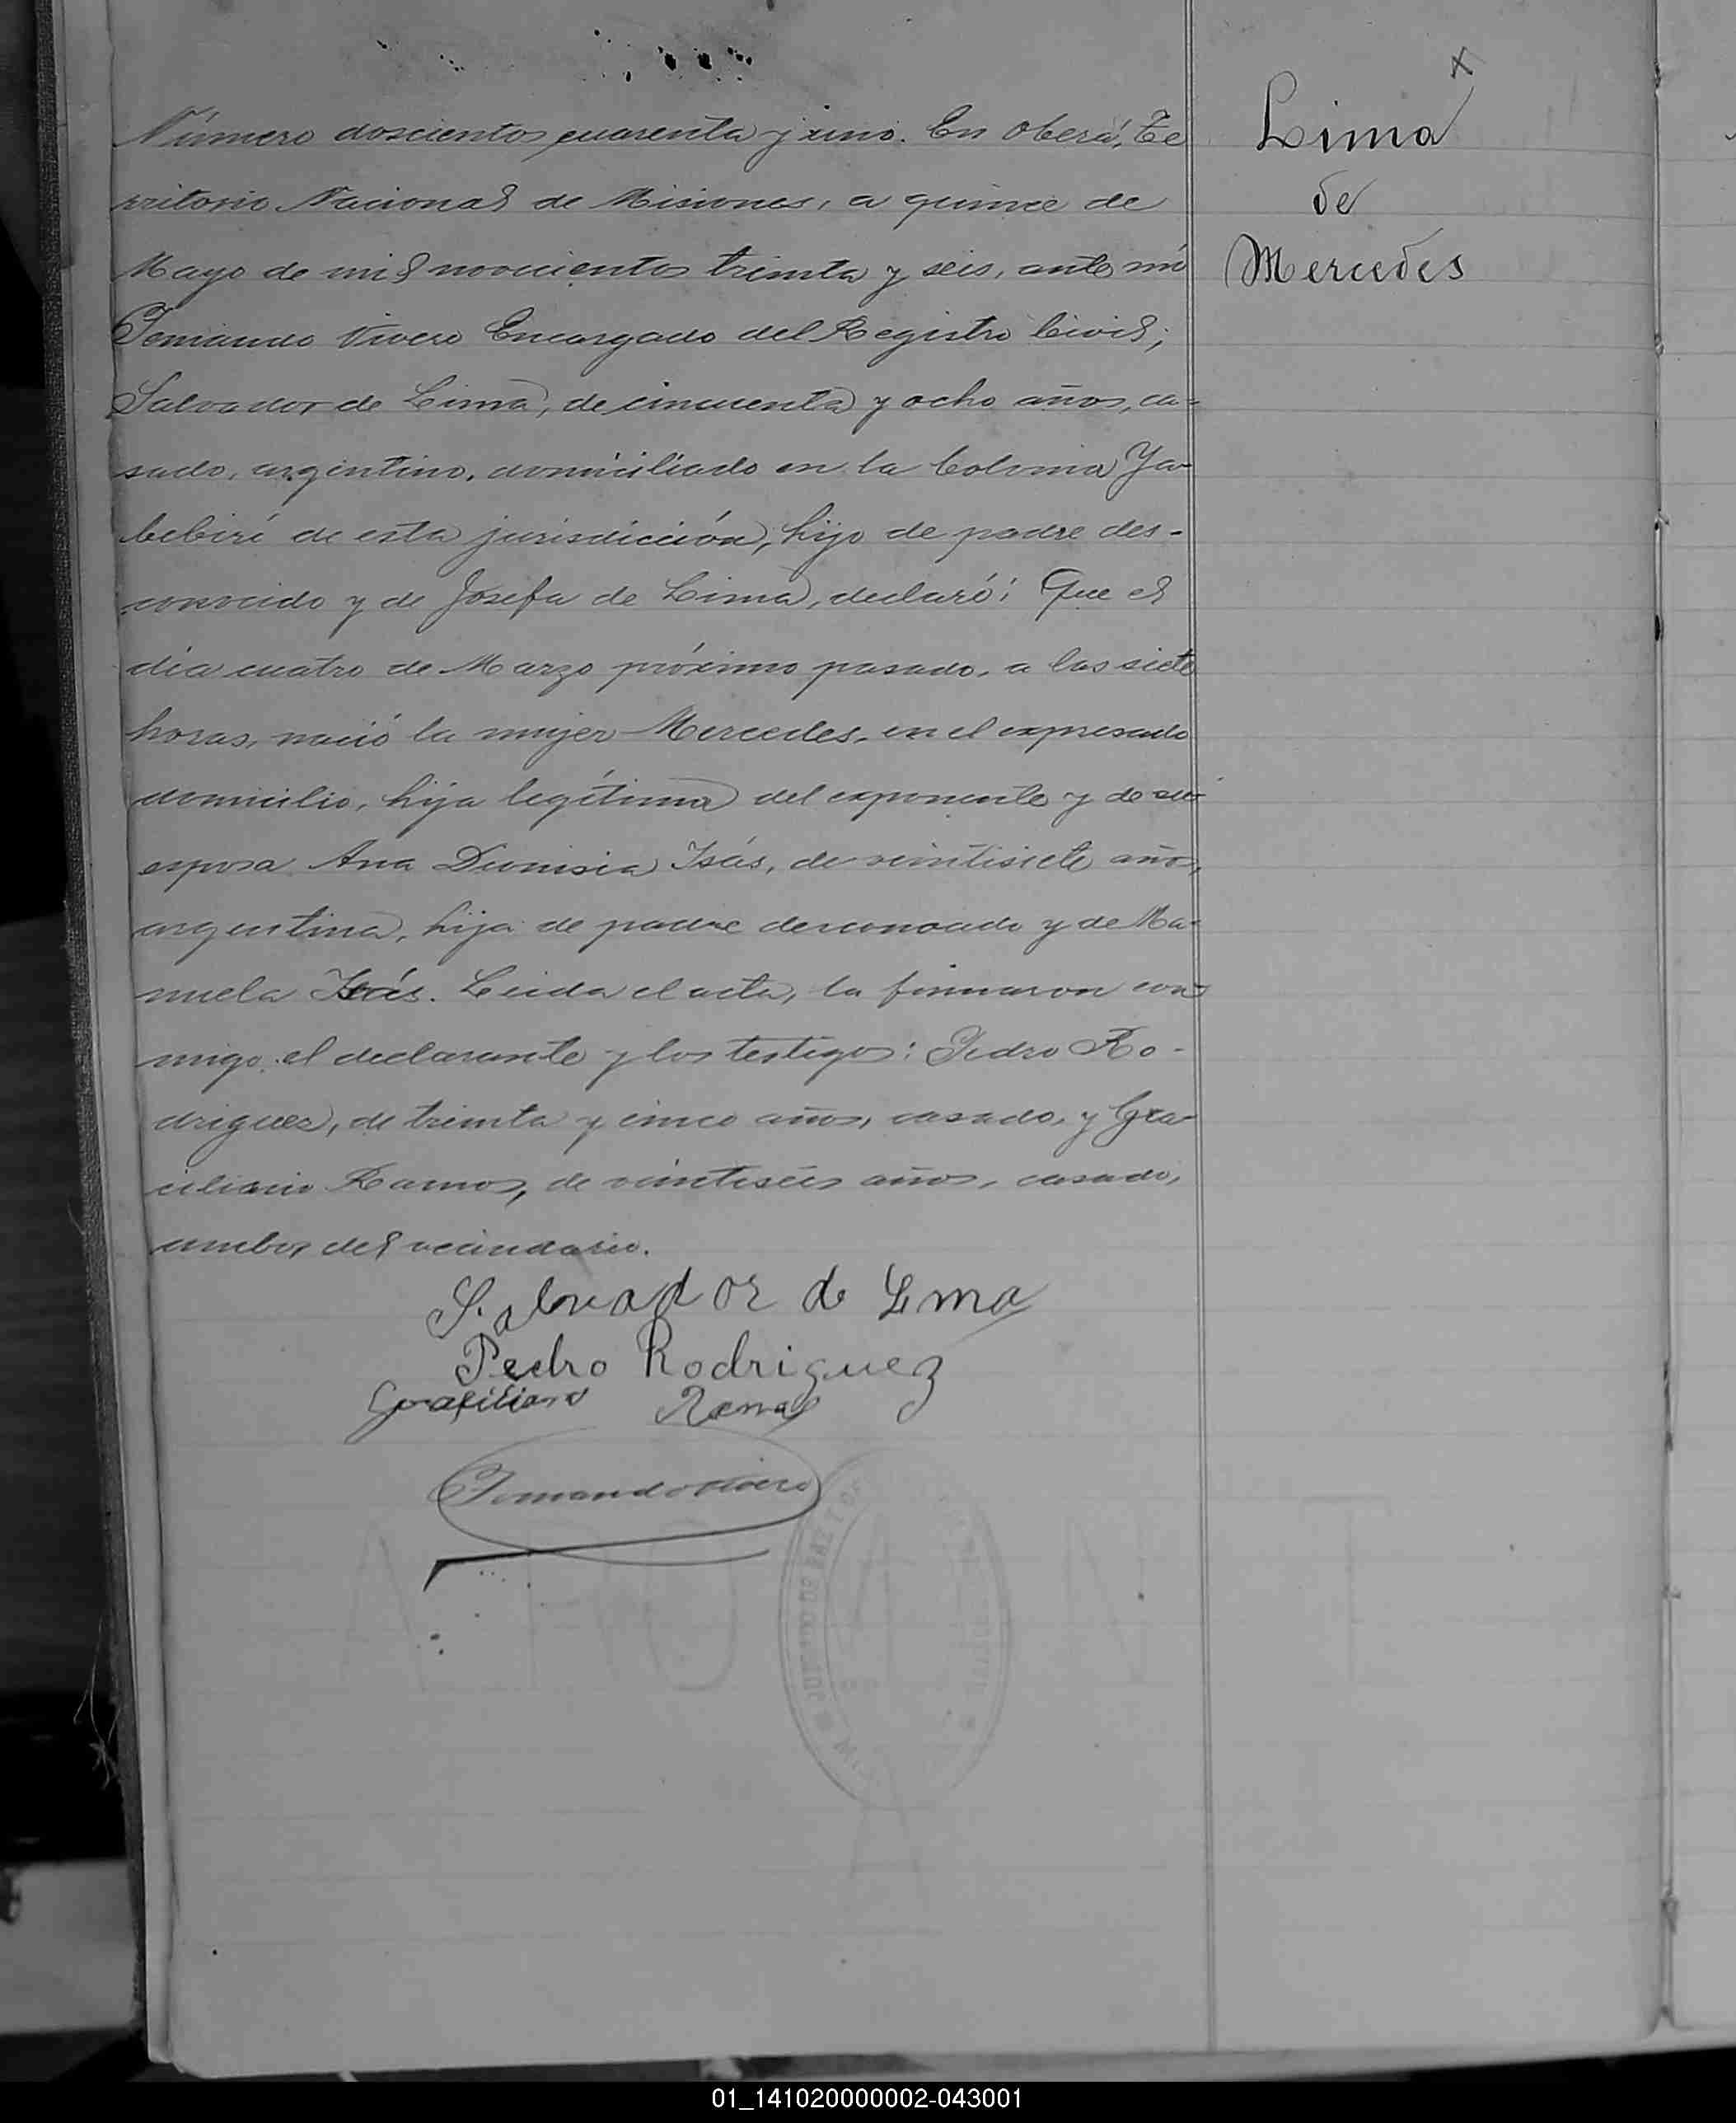 Número doscientos cuarenta y uno. En Oberá, Te
rritorio Nacional de Misiones, a quince de
Mayo de mil novecientos treinta y seis, ante mí
Fernando Vivero Encargado del Registro Civil;
Salvador de Lima, de cincuenta y ocho años, ca-
sado, argentino, domiciliado en la Colonia Ya-
bebirí de esta jurisdicción, hijo de padre des-
conocido y de Josefa de Lima, declaró: Que el
día cuatro de Marzo próximo pasado, a las siete
horas, nació la mujer Mercedes, en el expresado
domicilio, hija legítima del exponente y de su
esposa Ana Dionisia Isás, de veintisiete años,
argentina, hija de padre desconocido y de Ma-
nuela Isás. Leida el acta, la firmaron con-
migo el declarante y los testigos: Pedro Ro-
driguez, de treinta y cinco años, casado, y Gra-
ciliano Ramos, de veintiseis años, casado,
ambos del vecindario.
Salvador de Lima
Pedro Rodriguez
Grasiliano Ramos
Fernando Vivero
Lima
de
Mercedes
01_141020000002-043001